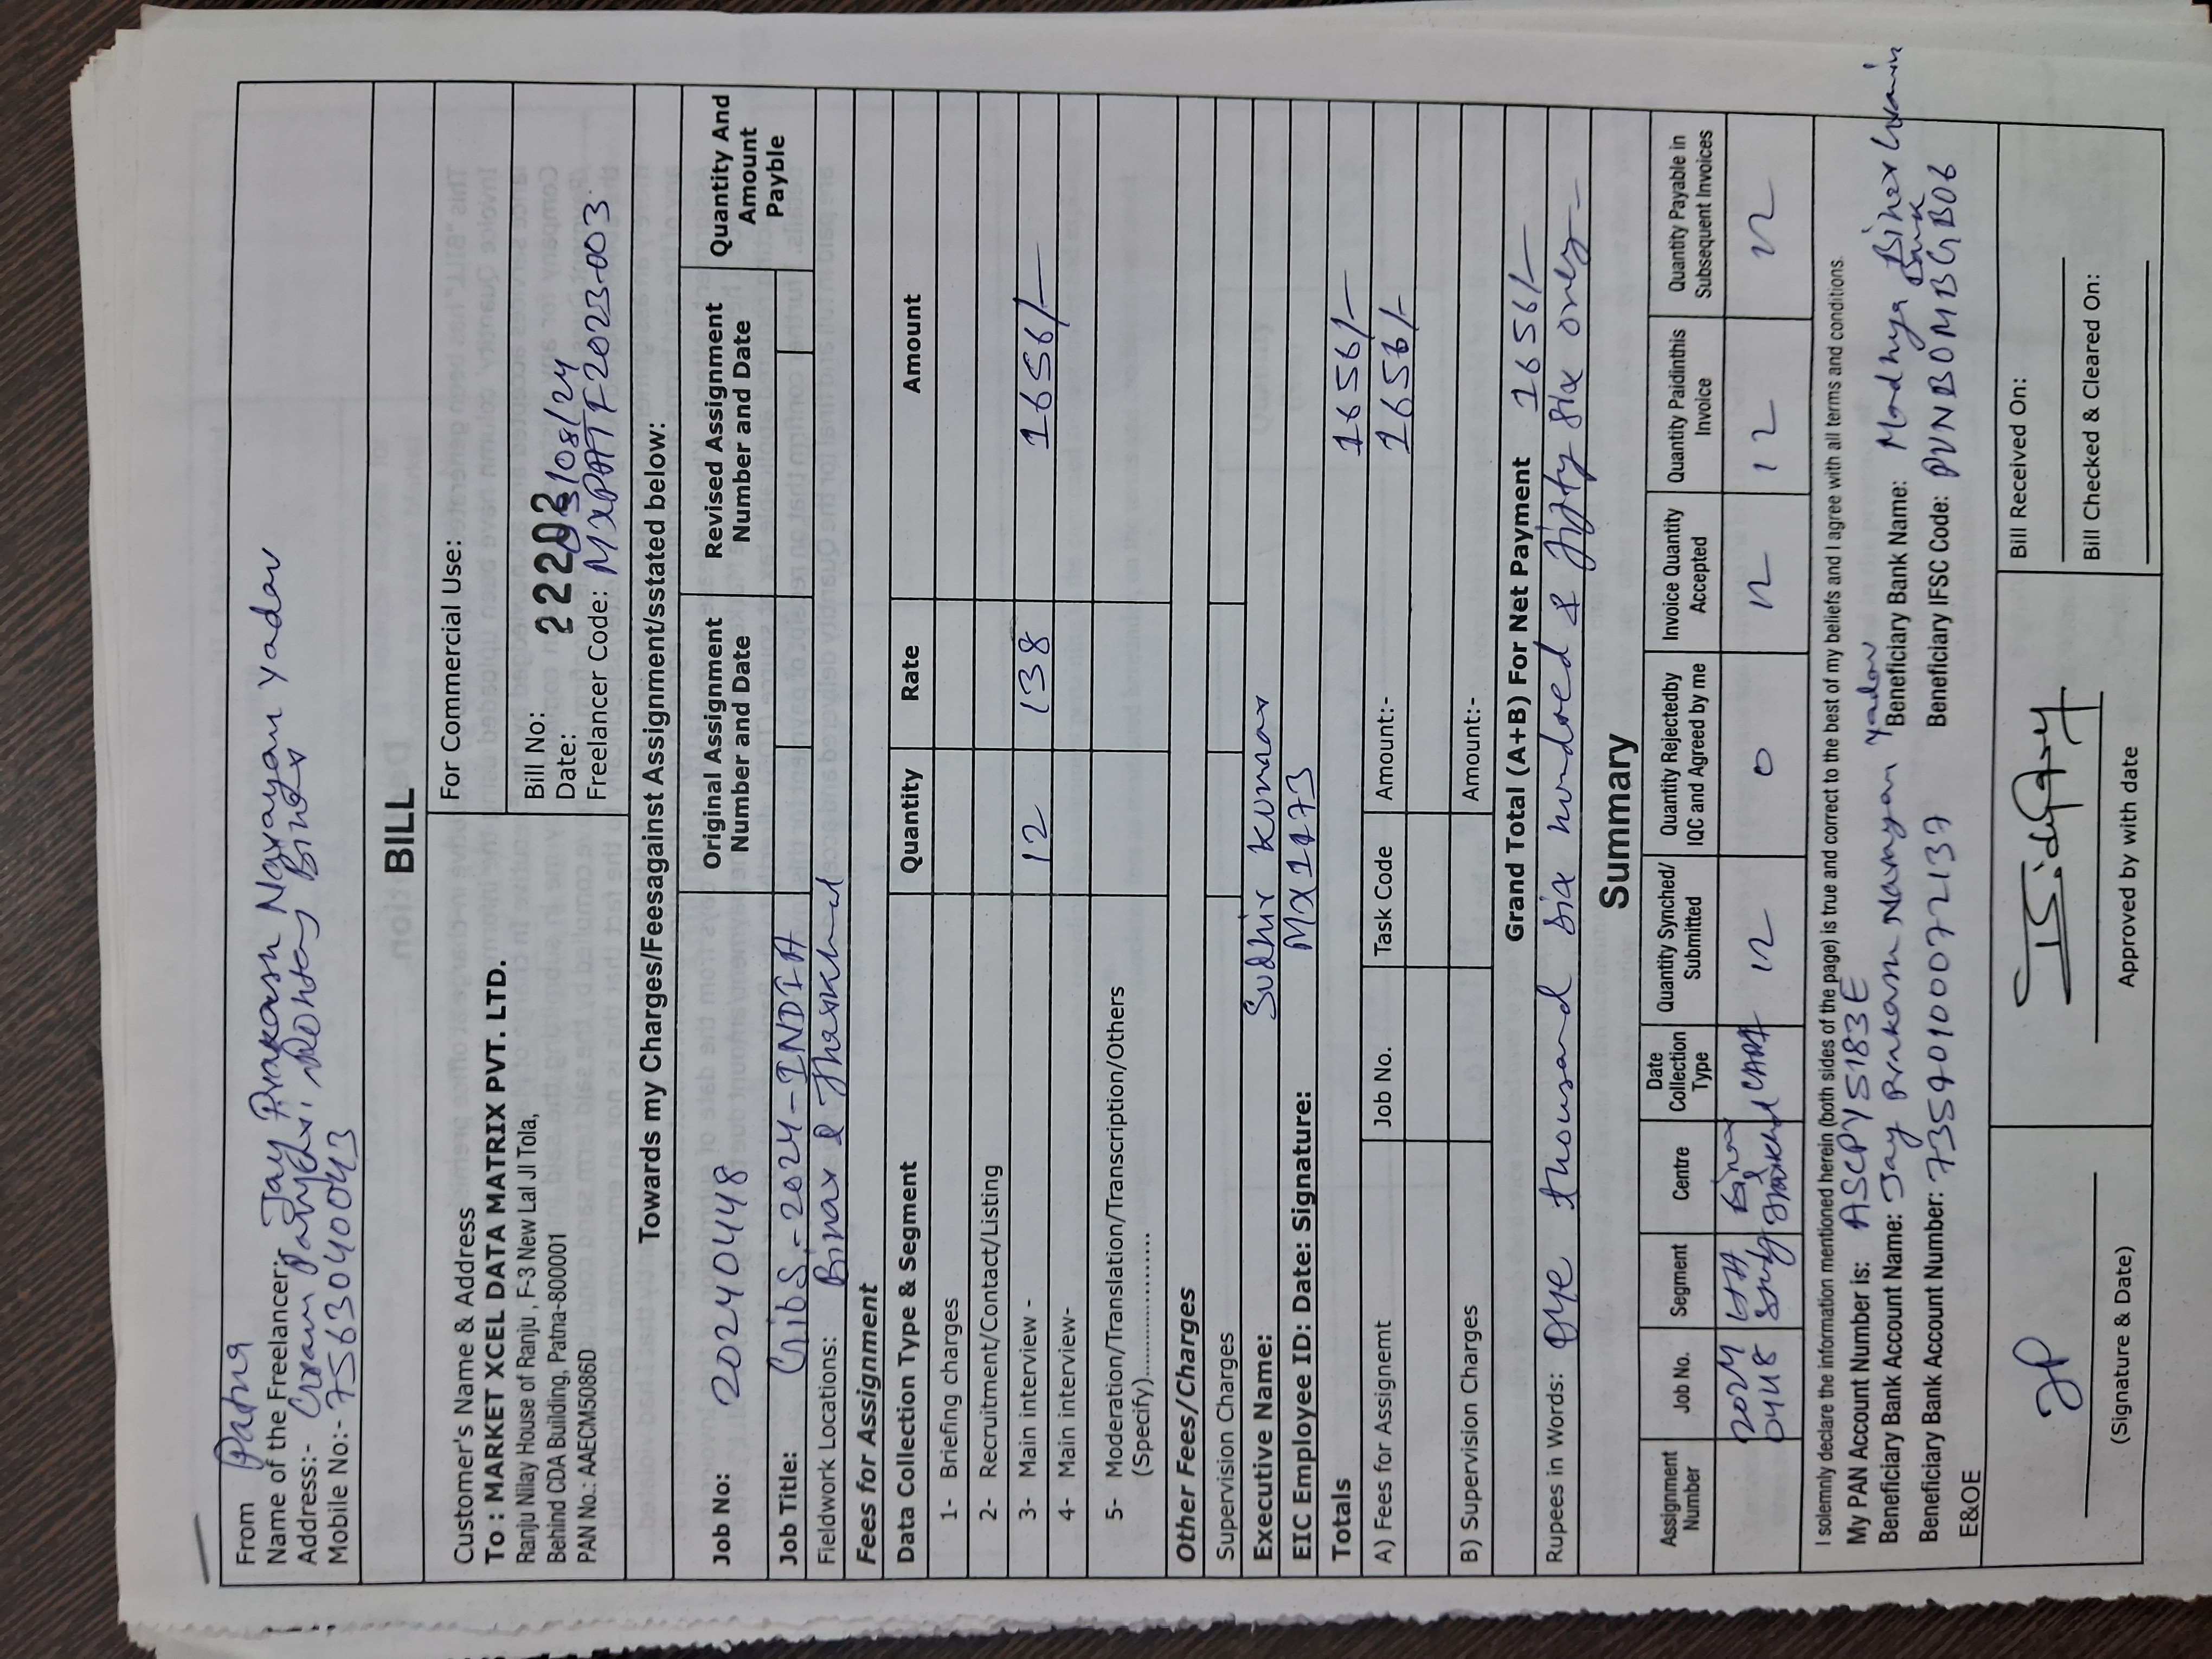 From Patna
Name of the Freelancer: Jay Prakash Narayan Yadav
Address:- Gram
Mobile No:- 7563040043
BILL
Customer's Name & Address
To : MARKET XCEL DATA MATRIX PVT. LTD.
Ranju Nilay House of Ranju , F-3 New Lal JI Tola,
Behind CDA Building, Patna-800001
PAN No.: AAECM5086D
For Commercial Use:
Bill No: 22202
Date: 03/08/24
Freelancer Code: MXPATF2023-003
Towards my Charges/Feesagainst Assignment/sstated below:
Job No: 20240448
Original Assignment Number and Date
Revised Assignment Number and Date
Quantity And Amount Payble
Job Title: Gibs-2024-INDIA
Fieldwork Locations: Bihar & Jharkhand
Fees for Assignment
Data Collection Type & Segment Quantity Rate Amount
1- Briefing charges
2- Recruitment/Contact/Listing
3- Main interview - 12 138 1656/-
4- Main interview-
5- Moderation/Translation/Transcription/Others
(Specify)..................
Other Fees/Charges
Supervision Charges
Executive Name: Sudhir Kumar
EIC Employee ID: Date: Signature: MX1173
Totals 1656/-
A) Fees for Assignemt Job No. Task Code Amount:- 1656/-
B) Supervision Charges Amount:-
Grand Total (A+B) For Net Payment 1656/-
Rupees in Words: One thousand six hundred & fifty six only
Summary
Assignment Number
Job No.
Segment
Centre
Date Collection Type
Quantity Synched/ Submitted
Quantity Rejectedby IQC and Agreed by me
Invoice Quantity Accepted
Quantity Paidinthis Invoice
Quantity Payable in Subsequent Invoices
2024 0448 Bihar Jharkhand CAPI 12 0 12 12 12
I solemnly declare the information mentioned herein (both sides of the page) is true and correct to the best of my beliefs and I agree with all terms and conditions.
My PAN Account Number is: ASCPY5183E
Beneficiary Bank Account Name: Jay Prakash Narayan Yadav Beneficiary Bank Name: Madhya Bihar Gramin Bank
Beneficiary Bank Account Number: 73590100072137 Beneficiary IFSC Code: PUNB0MBGB06
E&OE
JP
(Signature & Date)
Approved by with date
Bill Received On:
Bill Checked & Cleared On: